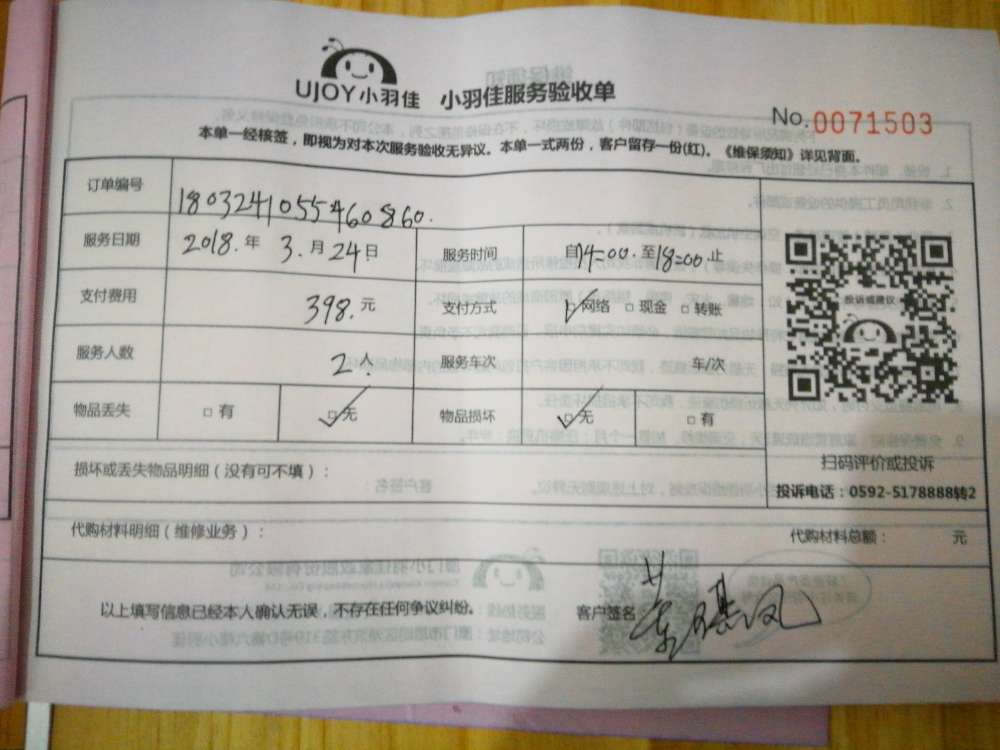 UJOY小羽佳 小羽佳服务验收单
No.0071503
本单一经核签，即视为对本次服务验收无异议。本单一式两份，客户留存一份(红)。《维保须知》详见背面。
订单编号 180324105546086​0.
服务日期 2018.年 3.月24日 服务时间 自14=00.至18=00止
支付费用 398.元 支付方式 网络 现金 转账
投诉或建议
服务人数 2人 服务车次 车/次
物品丢失 有 无 物品损坏 无 有
扫码评价或投诉
损坏或丢失物品明细（没有可不填）：
投诉电话：0592-5178888转2
代购材料明细（维修业务）： 代购材料总额： 元
以上填写信息已经本人确认无误，不存在任何争议纠纷。 客户签名